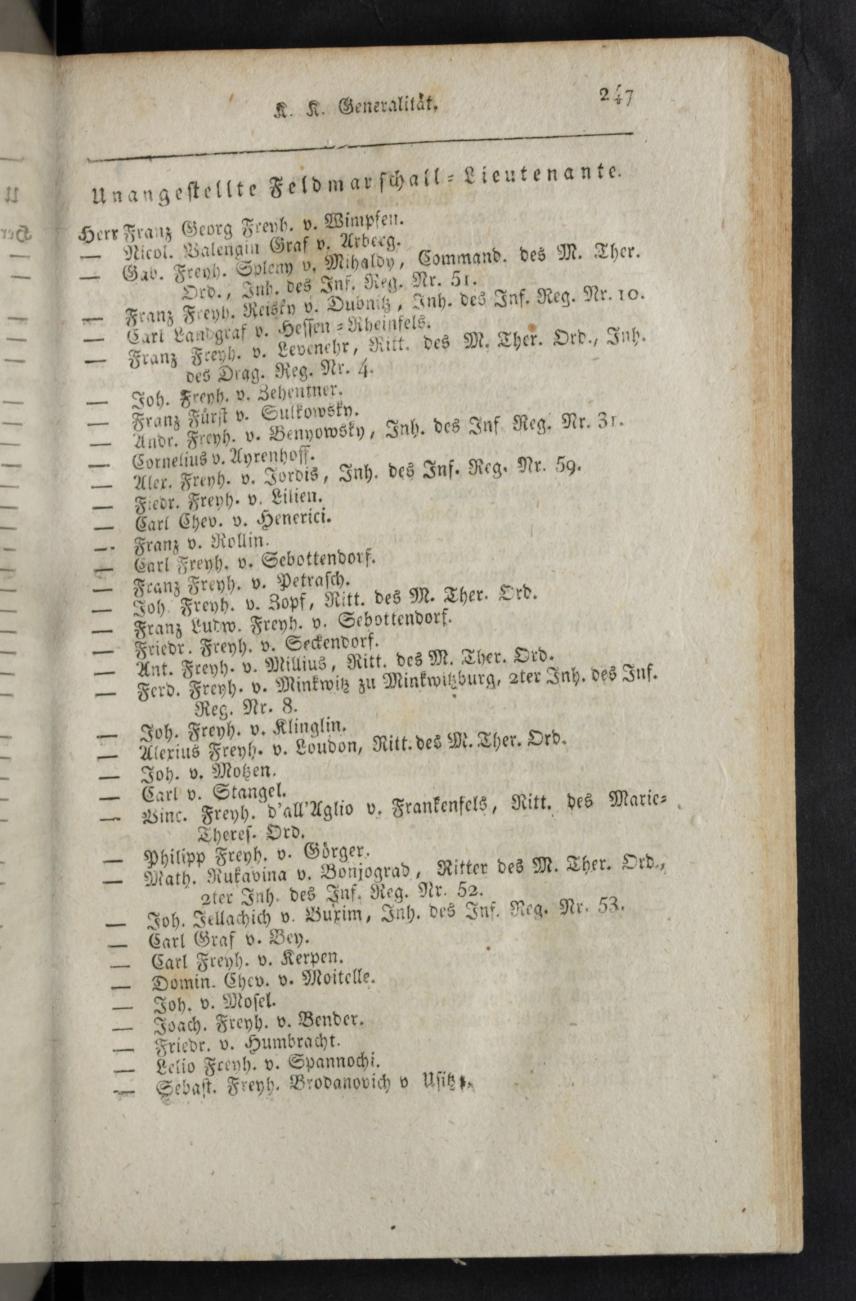 K. K. Generalität. 247
Unangestellte Feldmarschall-Lieutenante.
Herr Franz Georg Freyh. v. Wimpfen.
— Nicol. Valengin Graf v. Arberg.
— Gab. Freyh. Spleny v. Mihaldy, Command. des M. Ther.
Ord., Inh. des Inf. Reg. Nr. 51.
— Franz Freyh. Reisky v. Dubnitz, Inh. des Inf. Reg. Nr. 10.
— Carl Landgraf v. Hessen-Rheinfels.
— Franz Freyh. v. Levenehr, Ritt. des M. Ther. Ord., Inh.
des Drag. Reg. Nr. 4.
— Joh. Freyh. v. Zehentner.
— Franz Fürst v. Sulkowsky.
— Andr. Freyh. v. Benyowsky, Inh. des Inf Reg. Nr. 31.
— Cornelius v. Ayrenhoff.
— Alex. Freyh. v. Jordis, Inh. des Inf. Reg. Nr. 59.
— Fiedr. Freyh. v. Lilien.
— Carl Chev. v. Henerici.
— Franz v. Rollin.
— Carl Freyh. v. Sebottendorf.
— Franz Freyh. v. Petrasch.
— Joh. Freyh. v. Zopf, Ritt. des M. Ther. Ord.
— Franz Ludw. Freyh. v. Sebottendorf.
— Friedr. Freyh. v. Seckendorf.
— Ant. Freyh. v. Millius, Ritt. des M. Ther. Ord.
— Ferd. Freyh. v. Minkwitz zu Minkwitzburg, 2ter Inh. des Inf.
Reg. Nr. 8.
— Joh. Freyh. v. Klinglin.
— Alexius Freyh. v. Loudon, Ritt. des M. Ther. Ord.
— Joh. v. Motzen.
— Carl v. Stangel.
— Vinc. Freyh. d'all'Aglio v. Frankenfels, Ritt. des Marie-
Theres. Ord.
— Philipp Freyh. v. Görger.
— Math. Rukavina v. Bonjograd, Ritter des M. Ther. Ord.,
2ter Inh. des Inf. Reg. Nr. 52.
— Joh. Jellachich v. Buxim, Inh. des Inf. Reg. Nr. 53.
— Carl Graf v. Bey.
— Carl Freyh. v. Kerpen.
— Domin. Chev. v. Moitelle.
— Joh. v. Mosel.
— Joach. Freyh. v. Bender.
— Friedr. v. Humbracht.
— Lelio Freyh. v. Spannochi.
— Sebast. Freyh. Brodanovich v Usitz